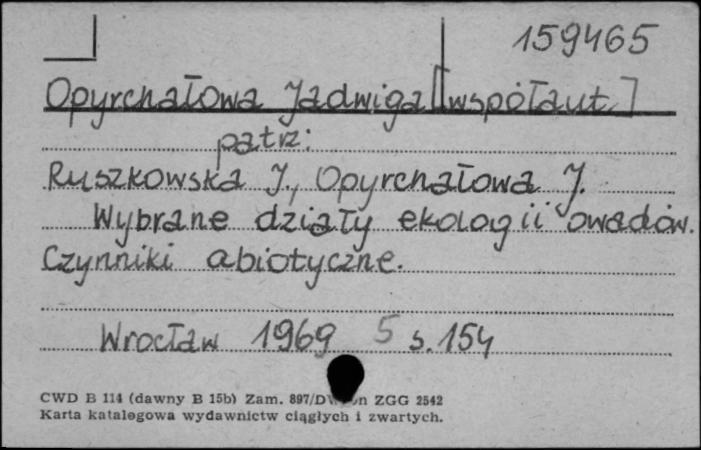 159465
Opyrchałowa Jadwiga [współaut.]
patrz:
Ruszkowska J., Opyrchałowa J.
Wybrane działy ekologii owadów.
Czynniki abiotyczne.
Wrocław 1969 5 s. 154
CWD B 114 (dawny B 15b) Zam. 897/ ZGG 2542
Karta katalogowa wydawnictw ciągłych i zwartych.